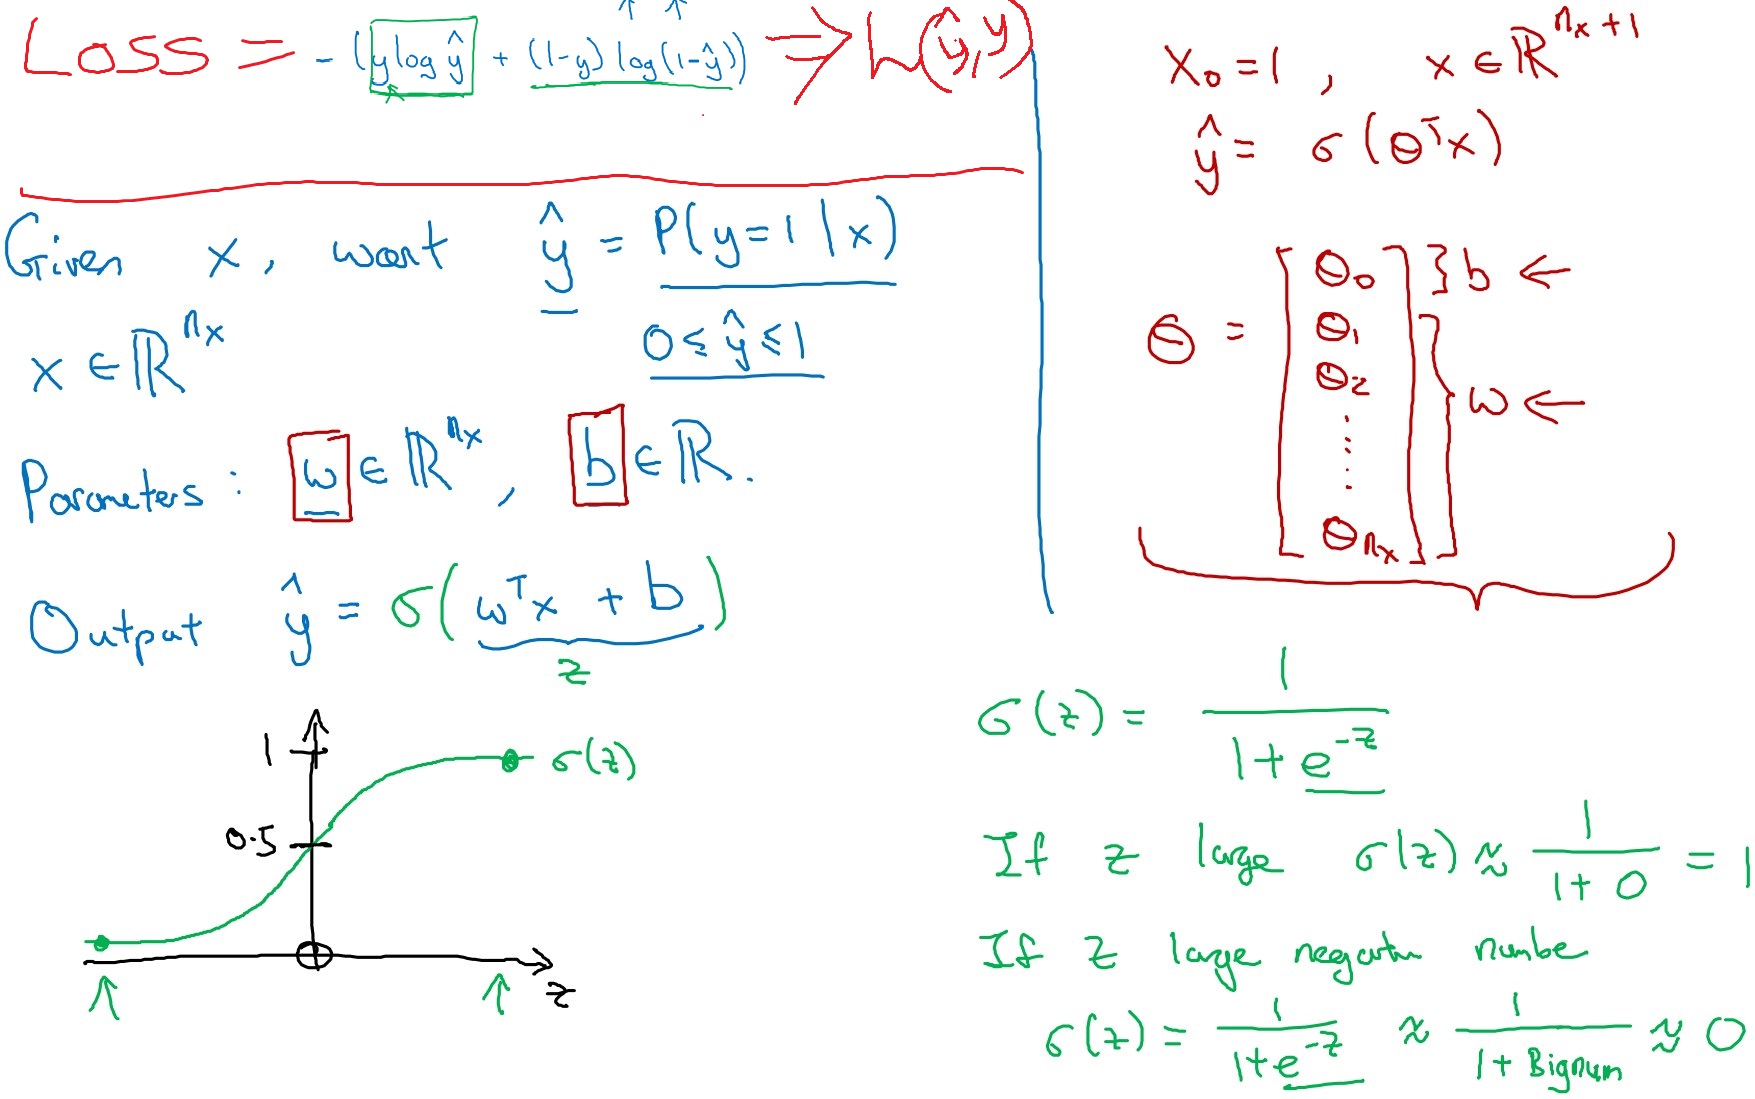 Loss = - (y log ŷ + (1-y) log(1-ŷ)) ⇒ L(ŷ,y)
Given x, want ŷ = P(y=1|x)
x ∈ ℝ^{nx}
0 ≤ ŷ ≤ 1
Parameters: w ∈ ℝ^{nx}, b ∈ ℝ.
Output ŷ = σ(w^T x + b)
z
1
σ(z)
0.5
z
x₀ = 1, x ∈ ℝ^{nx+1}
ŷ = σ(θ^T x)
θ = [θ₀ θ₁ θ₂ ⋮ θ_{nx}]
} b ←
} w ←
σ(z) = 1/(1+e^{-z})
If z large σ(z) ≈ 1/(1+0) = 1
If z large negative number
σ(z) = 1/(1+e^{-z}) ≈ 1/(1+Bignum) ≈ 0